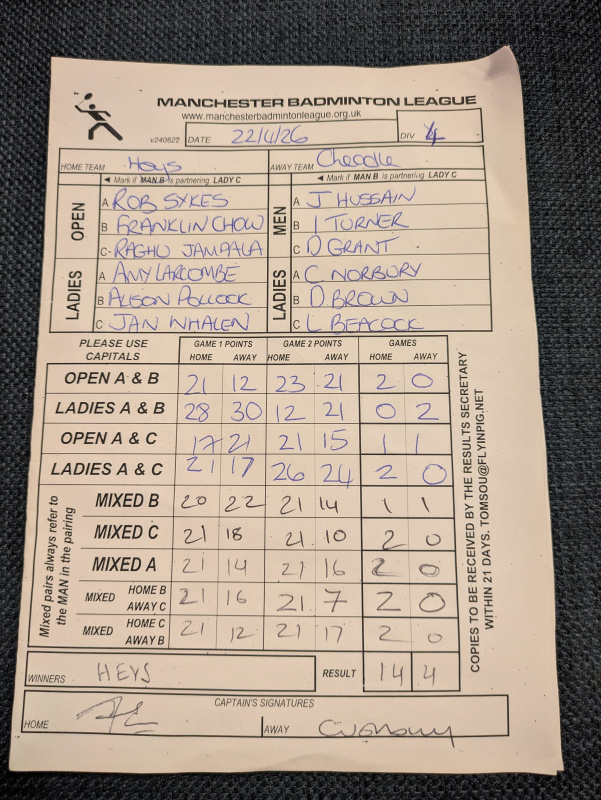 MANCHESTER BADMINTON LEAGUE
www.manchesterbadmintonleague.org.uk
v240622 DATE 22/4/26 DIV 4
HOME TEAM Heys AWAY TEAM Cheadle
◄ Mark if MAN B is partnering LADY C ◄ Mark if MAN B is partnering LADY C
OPEN MEN
A ROB SYKES A J HUSSAIN
B FRANKLIN CHOW B I TURNER
C RAGHU JAMPALA C D GRANT
LADIES LADIES
A AMY LARCOMBE A C NORBURY
B ALISON POLLOCK B D BROWN
C JAN WHALEN C L BEACOCK
PLEASE USE CAPITALS GAME 1 POINTS GAME 2 POINTS GAMES
HOME AWAY HOME AWAY HOME AWAY
OPEN A & B 21 12 23 21 2 0
LADIES A & B 28 30 12 21 0 2
OPEN A & C 17 21 21 15 1 1
LADIES A & C 21 17 26 24 2 0
Mixed pairs always refer to
the MAN in the pairing
MIXED B 20 22 21 14 1 1
MIXED C 21 18 21 10 2 0
MIXED A 21 14 21 16 2 0
MIXED HOME B AWAY C 21 16 21 7 2 0
MIXED HOME C AWAY B 21 12 21 17 2 0
WINNERS HEYS RESULT 14 4
CAPTAIN'S SIGNATURES
HOME AWAY CNorbury
COPIES TO BE RECEIVED BY THE RESULTS SECRETARY
WITHIN 21 DAYS. TOMSOU@FLYINPIG.NET